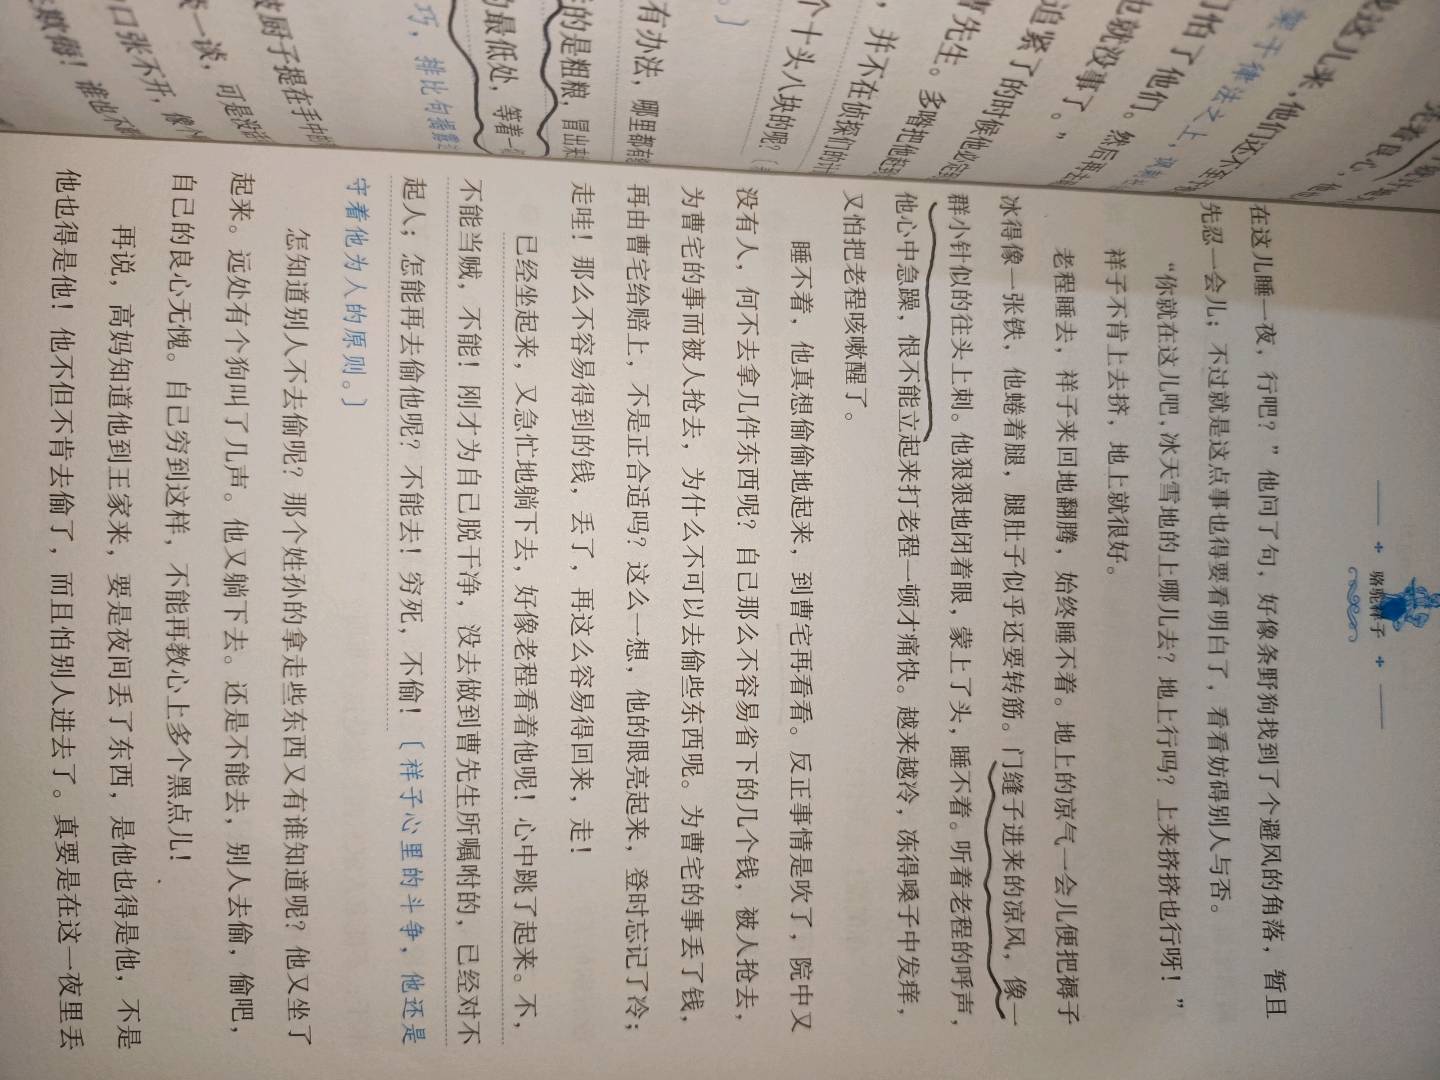 骆驼祥子
在这儿睡一夜，行吧？”他问了句，好像条野狗找到了个避风的角落，暂且
先忍一会儿；不过就是这点事也得要看明白了，看看妨碍别人与否。
“你就在这儿吧，冰天雪地的上哪儿去？地上行吗？上来挤挤也行呀！”
祥子不肯上去挤，地上就很好。
老程睡去，祥子来回地翻腾，始终睡不着。地上的凉气一会儿便把褥子
冰得像一张铁，他蜷着腿，腿肚子似乎还要转筋。门缝子进来的凉风，像一
群小针似的往头上刺。他狠狠地闭着眼，蒙上了头，睡不着。听着老程的呼声，
他心中急躁，恨不能立起来打老程一顿才痛快。越来越冷，冻得嗓子中发痒，
又怕把老程咳嗽醒了。
睡不着，他真想偷偷地起来，到曹宅再看看。反正事情是吹了，院中又
没有人，何不去拿几件东西呢？自己那么不容易省下的几个钱，被人抢去，
为曹宅的事而被人抢去，为什么不可以去偷些东西呢。为曹宅的事丢了钱，
再由曹宅给赔上，不是正合适吗？这么一想，他的眼亮起来，登时忘记了冷；
走哇！那么不容易得到的钱，丢了，再这么容易得回来，走！
已经坐起来，又急忙地躺下去，好像老程看着他呢！心中跳了起来。不，
不能当贼，不能！刚才为自己脱干净，没去做到曹先生所嘱咐的，已经对不
起人；怎能再去偷他呢？不能去！穷死，不偷！〔祥子心里的斗争，他还是
守着他为人的原则。〕
怎知道别人不去偷呢？那个姓孙的拿走些东西又有谁知道呢？他又坐了
起来。远处有个狗叫了几声。他又躺下去。还是不能去，别人去偷，偷吧，
自己的良心无愧。自己穷到这样，不能再教心上多个黑点儿！
再说，高妈知道他到王家来，要是夜间丢了东西，是他也得是他，不是
他也得是他！他不但不肯去偷了，而且怕别人进去了。真要是在这一夜里丢
这儿来，他们还不至于
怕了他们。然后再去
也就没事了。”
追紧了的时候他必定
曹先生。多咱把他赶
，并不在侦探们的计
个十头八块的呢？〔
。〕
有办法，哪里都有
的是粗粮，冒出来
的最低处，等着一
巧，排比句描
被厨子提在手中
一谈，可是没
口张不开，像个
欺侮！谁也不